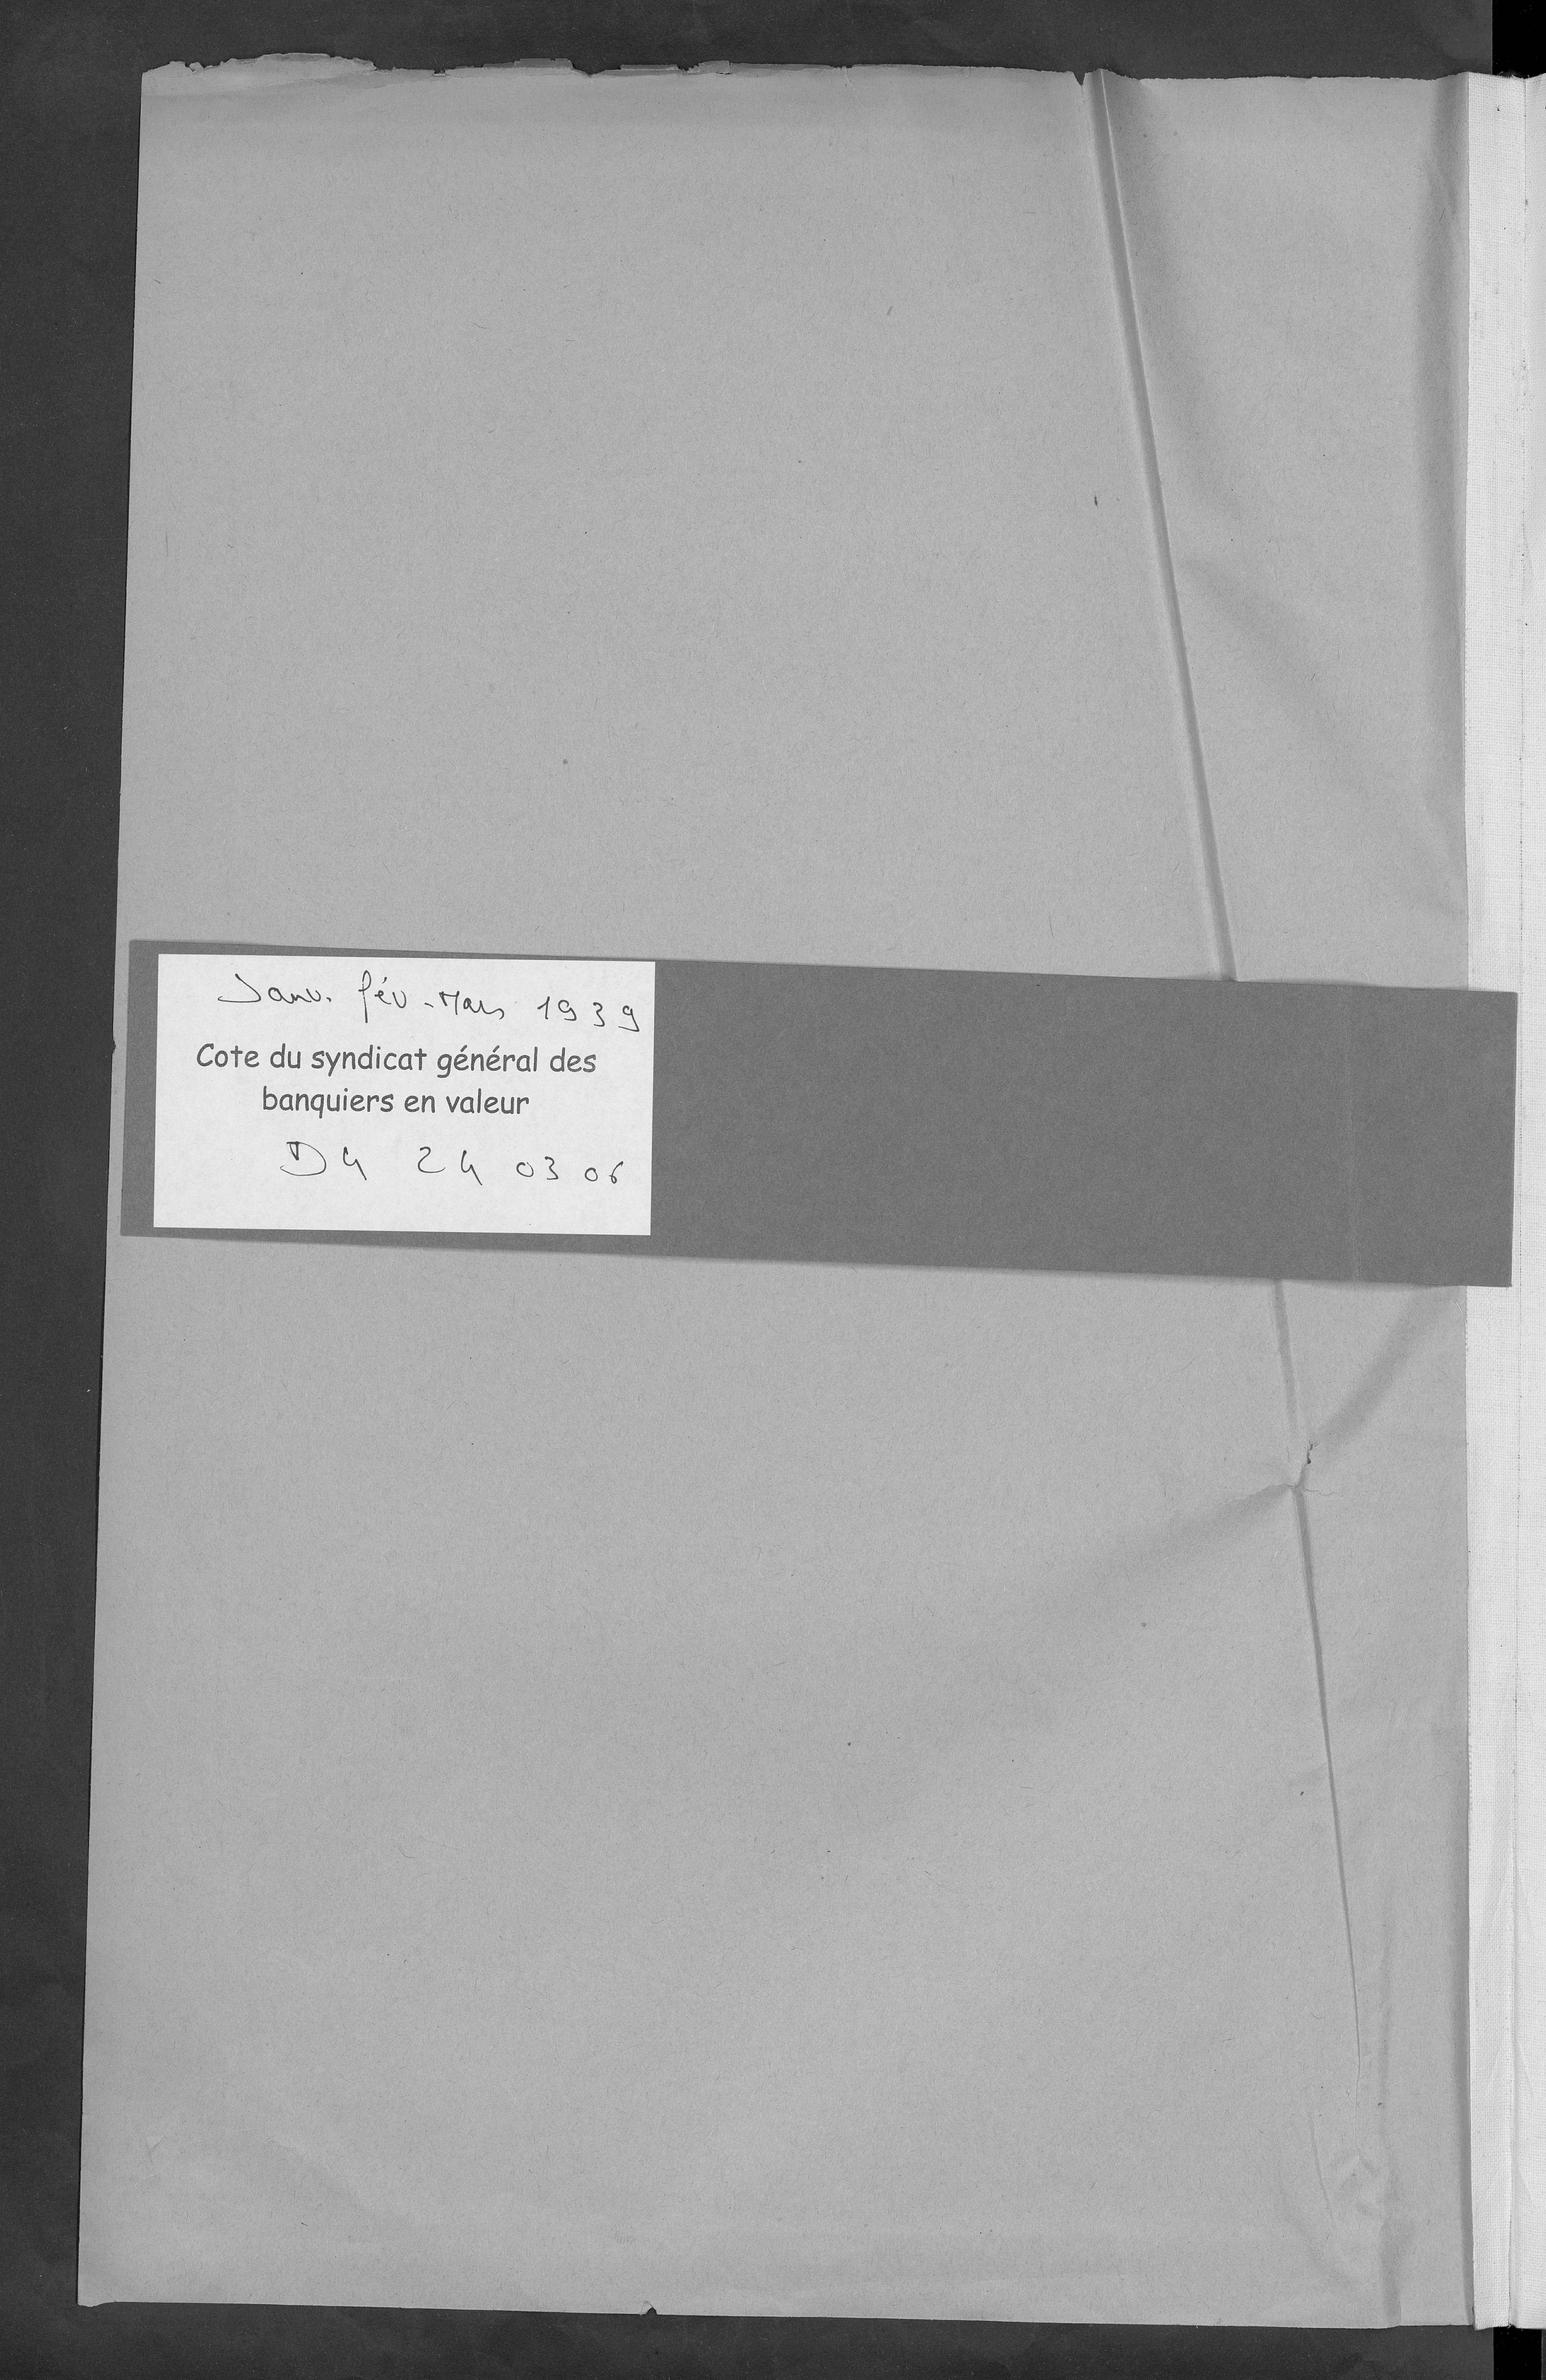 Janv. fév - Mars 1939
Cote du syndicat général des
banquiers en valeur
D4 24 03 06